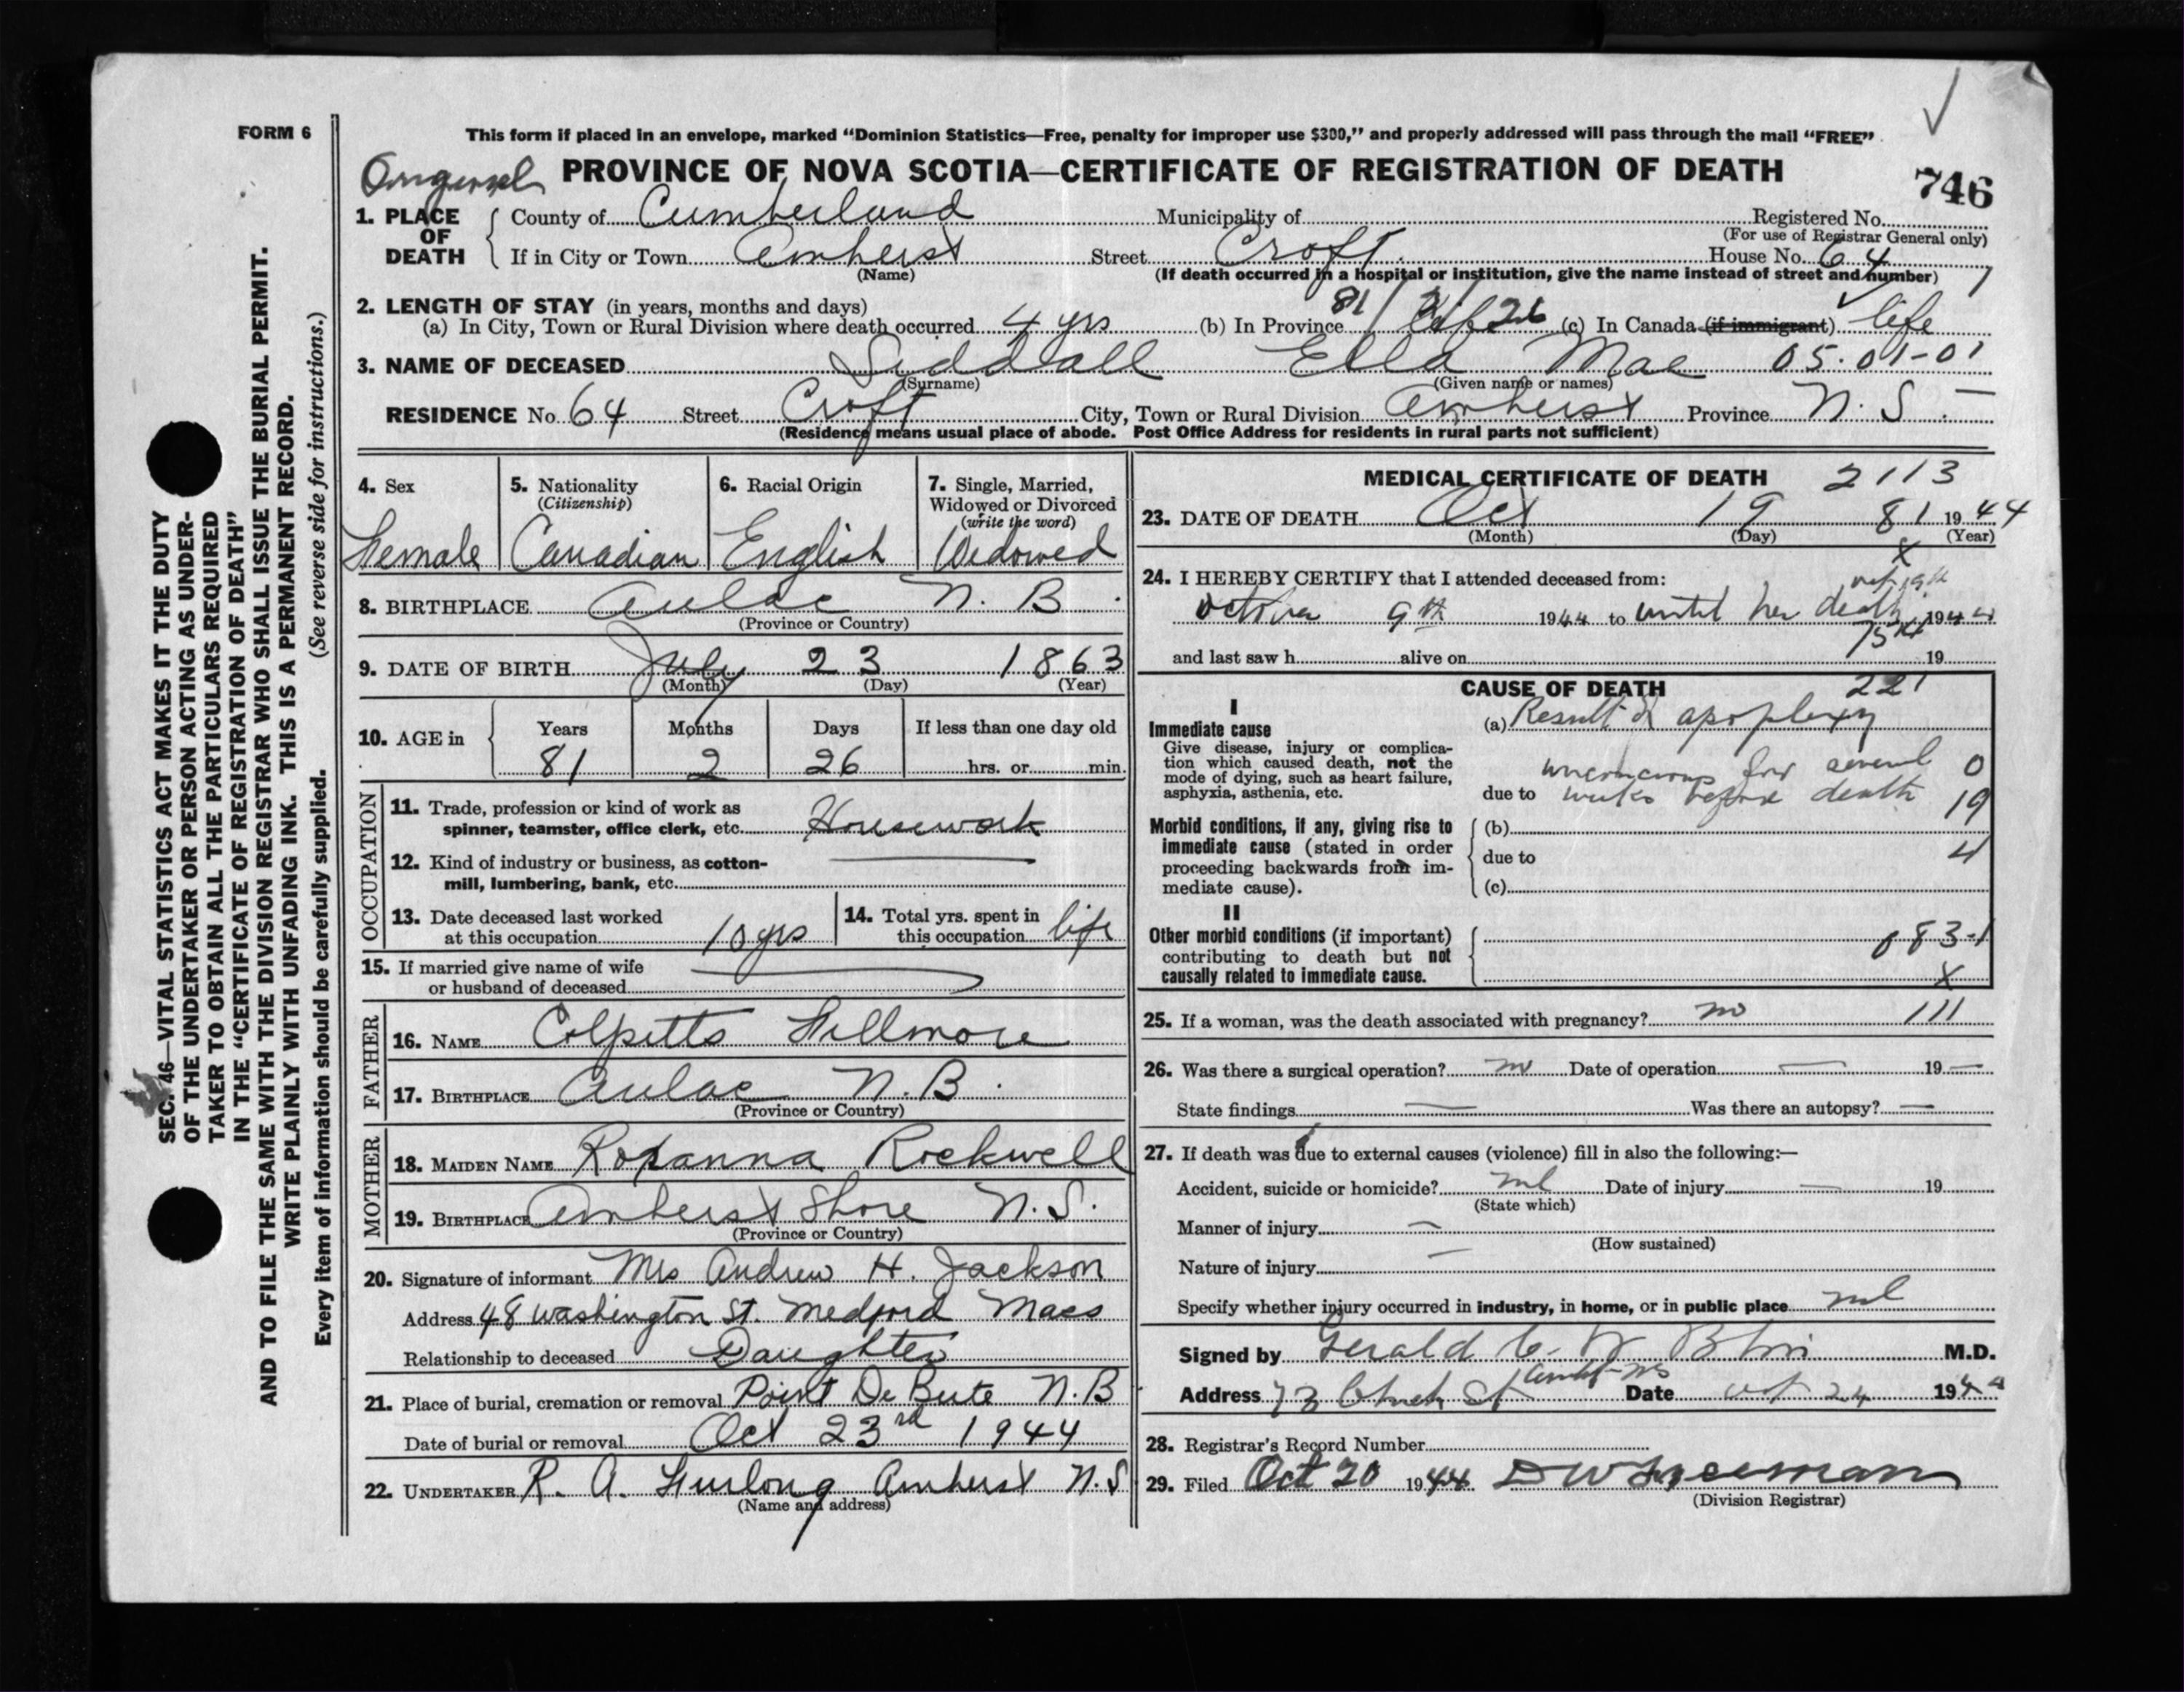 FORM 6
This form if placed in an envelope, marked "Dominion Statistics—Free, penalty for improper use $300," and properly addressed will pass through the mail "FREE"
PROVINCE OF NOVA SCOTIA—CERTIFICATE OF REGISTRATION OF DEATH
746
1. PLACE OF DEATH
County of Cumberland Municipality of Registered No.
(For use of Registrar General only)
If in City or Town Amherst Street Croft House No. 64
(Name) (If death occurred in a hospital or institution, give the name instead of street and number)
2. LENGTH OF STAY (in years, months and days)
(a) In City, Town or Rural Division where death occurred 4 yrs (b) In Province 81 26 (c) In Canada (if immigrant) life
3. NAME OF DECEASED Siddall Ella Mae 05-01-01
(Surname) (Given name or names)
RESIDENCE No. 64 Street Croft City, Town or Rural Division Amherst Province N. S.
(Residence means usual place of abode. Post Office Address for residents in rural parts not sufficient)
4. Sex Female
5. Nationality (Citizenship) Canadian
6. Racial Origin English
7. Single, Married, Widowed or Divorced (write the word) Widowed
8. BIRTHPLACE Aulac N. B.
(Province or Country)
9. DATE OF BIRTH July 23 1863
(Month) (Day) (Year)
10. AGE in Years Months Days If less than one day old
81 2 26 hrs. or min.
OCCUPATION
11. Trade, profession or kind of work as
spinner, teamster, office clerk, etc. Housework
12. Kind of industry or business, as cotton-
mill, lumbering, bank, etc.
13. Date deceased last worked
at this occupation 10 yrs
14. Total yrs. spent in
this occupation life
15. If married give name of wife
or husband of deceased
FATHER
16. NAME Colpitts Fillmore
17. BIRTHPLACE Aulac N. B.
(Province or Country)
MOTHER
18. MAIDEN NAME Roxanna Rockwell
19. BIRTHPLACE Amherst Shore N. S.
(Province or Country)
20. Signature of informant Mrs Andrew H. Jackson
Address 48 Washington St. Medford Mass
Relationship to deceased Daughter
21. Place of burial, cremation or removal Point De Bute N. B
Date of burial or removal Oct 23rd 1944
22. UNDERTAKER R. A. Furlong Amherst N. S
(Name and address)
MEDICAL CERTIFICATE OF DEATH 2113
23. DATE OF DEATH Oct 19 81 1944
(Month) (Day) (Year)
X
24. I HEREBY CERTIFY that I attended deceased from:
October 9th 1944 to until her death 1944
and last saw h alive on 19
CAUSE OF DEATH 221
I
Immediate cause
Give disease, injury or complica-
tion which caused death, not the
mode of dying, such as heart failure,
asphyxia, asthenia, etc.
(a) Result of apoplexy
unconscious for several 0
due to weeks before death 19
Morbid conditions, if any, giving rise to
immediate cause (stated in order
proceeding backwards from im-
mediate cause).
(b)
due to 4
(c)
II
Other morbid conditions (if important)
contributing to death but not
causally related to immediate cause.
083-1
X
25. If a woman, was the death associated with pregnancy? no 111
26. Was there a surgical operation? no Date of operation — 19 —
State findings — Was there an autopsy? —
27. If death was due to external causes (violence) fill in also the following:—
Accident, suicide or homicide? nil Date of injury — 19
(State which)
Manner of injury —
(How sustained)
Nature of injury —
Specify whether injury occurred in industry, in home, or in public place nil
Signed by Gerald M.D.
Address 73 Church St Date Oct 24 1944
28. Registrar's Record Number
29. Filed Oct 20 1944 D W Freeman
(Division Registrar)
SEC. 46—VITAL STATISTICS ACT MAKES IT THE DUTY
OF THE UNDERTAKER OR PERSON ACTING AS UNDER-
TAKER TO OBTAIN ALL THE PARTICULARS REQUIRED
IN THE "CERTIFICATE OF REGISTRATION OF DEATH"
AND TO FILE THE SAME WITH THE DIVISION REGISTRAR WHO SHALL ISSUE THE BURIAL PERMIT.
WRITE PLAINLY WITH UNFADING INK. THIS IS A PERMANENT RECORD.
Every item of information should be carefully supplied. (See reverse side for instructions.)